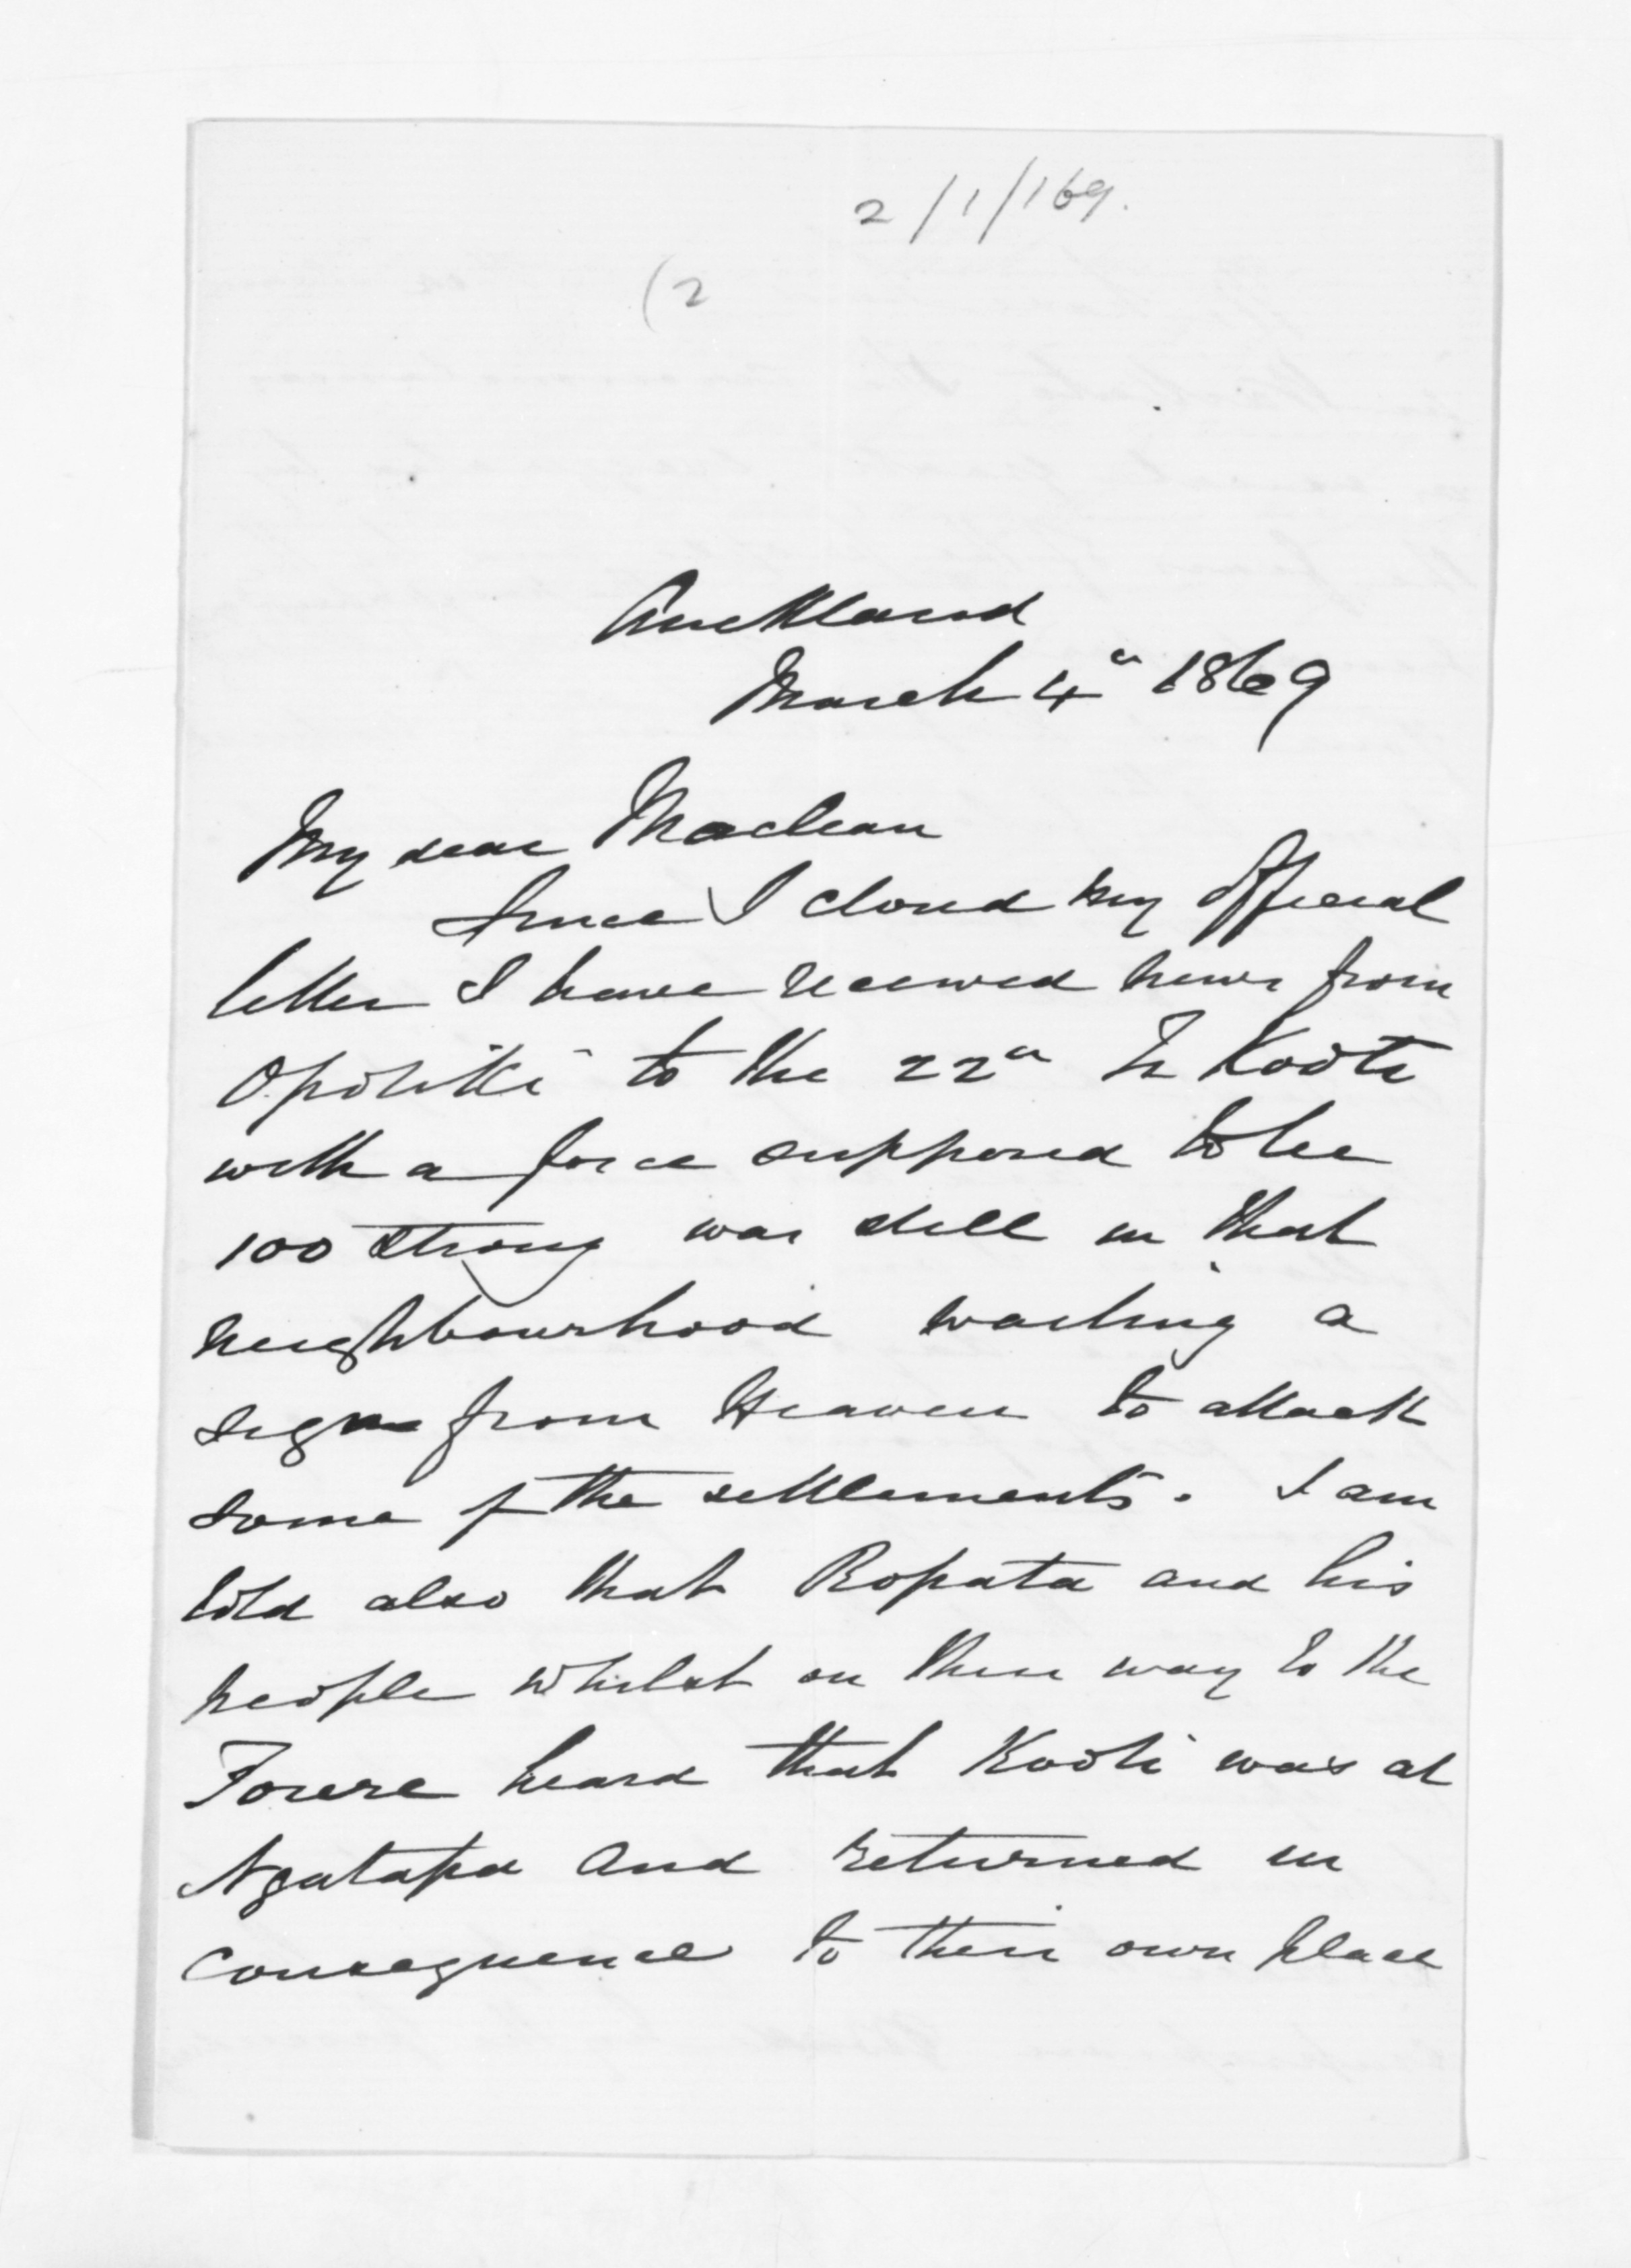 2/1/169.
(2
Auckland
March 4th 1869
My dear Maclean
Since I closed my Official
letter I have received news from
Opotiki to the 22d Te Kooti
with a force supposed to be
100 strong was still in that
neighbourhood waiting a
sign from Heaven to attack
some of the settlements. I am
told also that Ropata and his
people whilst on their way to the
Torere heard that Kooti was at
Ngatapa and returned in
consequence to their own place